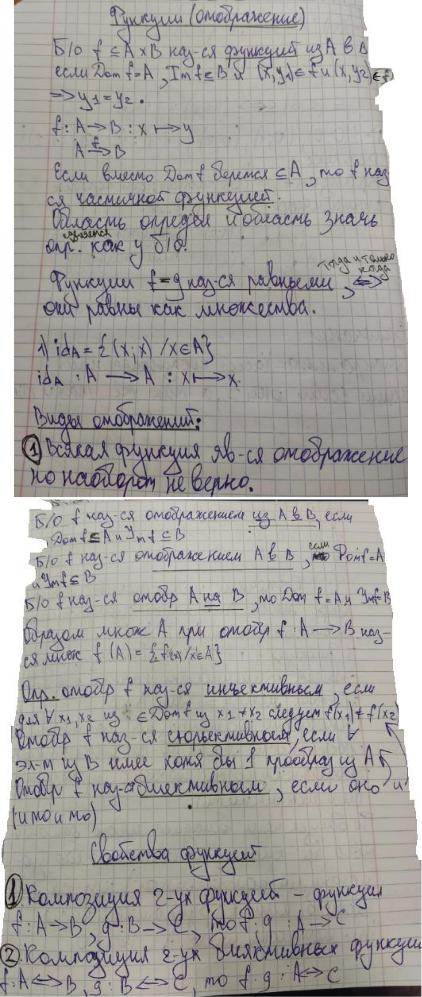 Функции (отображение)
Б/О f ⊆ A×B наз-ся функцией из A в B
если Dom f=A, Im f⊆B и (x,y1)∈f и (x,y2)∈f
=> y1=y2.
f: A→B : x↦y
A f→ B
Если вместо Dom f берется ⊆A, то f наз-
ся частичной функцией.
Область определ и область знач
опр. как у б/о.
Функции f=g наз-ся равными, <=> тогда и только когда
они равны как множества.
1) idA = {(x;x) / x∈A}
idA : A → A : x↦x
Виды отображений:
① Всякая функция яв-ся отображение
но наоборот не верно.
Б/О f наз-ся отображением из A в B, если
Dom f⊆A и Im f⊆B
Б/О f наз-ся отображением A в B, если Dom f=A
и Im f⊆B
Б/О f наз-ся отобр A на B, то Dom f=A и Im f=B
Образом множ A при отобр f: A→B наз-
ся множ f(A)={f(x)/x∈A}
Опр. отобр f наз-ся инъективным, если
для ∀ x1,x2 из ∈Dom f из x1≠x2 следует f(x1)≠f(x2)
Отобр f наз-ся сюръективным, если ∀
эл-т из B имее хотя бы 1 прообраз из A
Отобр f наз-ся биективным, если оно и
(и то и то)
Свойства функций
① Композиция 2-ух функций – функция
f: A→B, g: B→C, то f·g : A→C
② Композиция 2-ух биективных функци
f: A↔B, g: B↔C, то f·g : A↔C